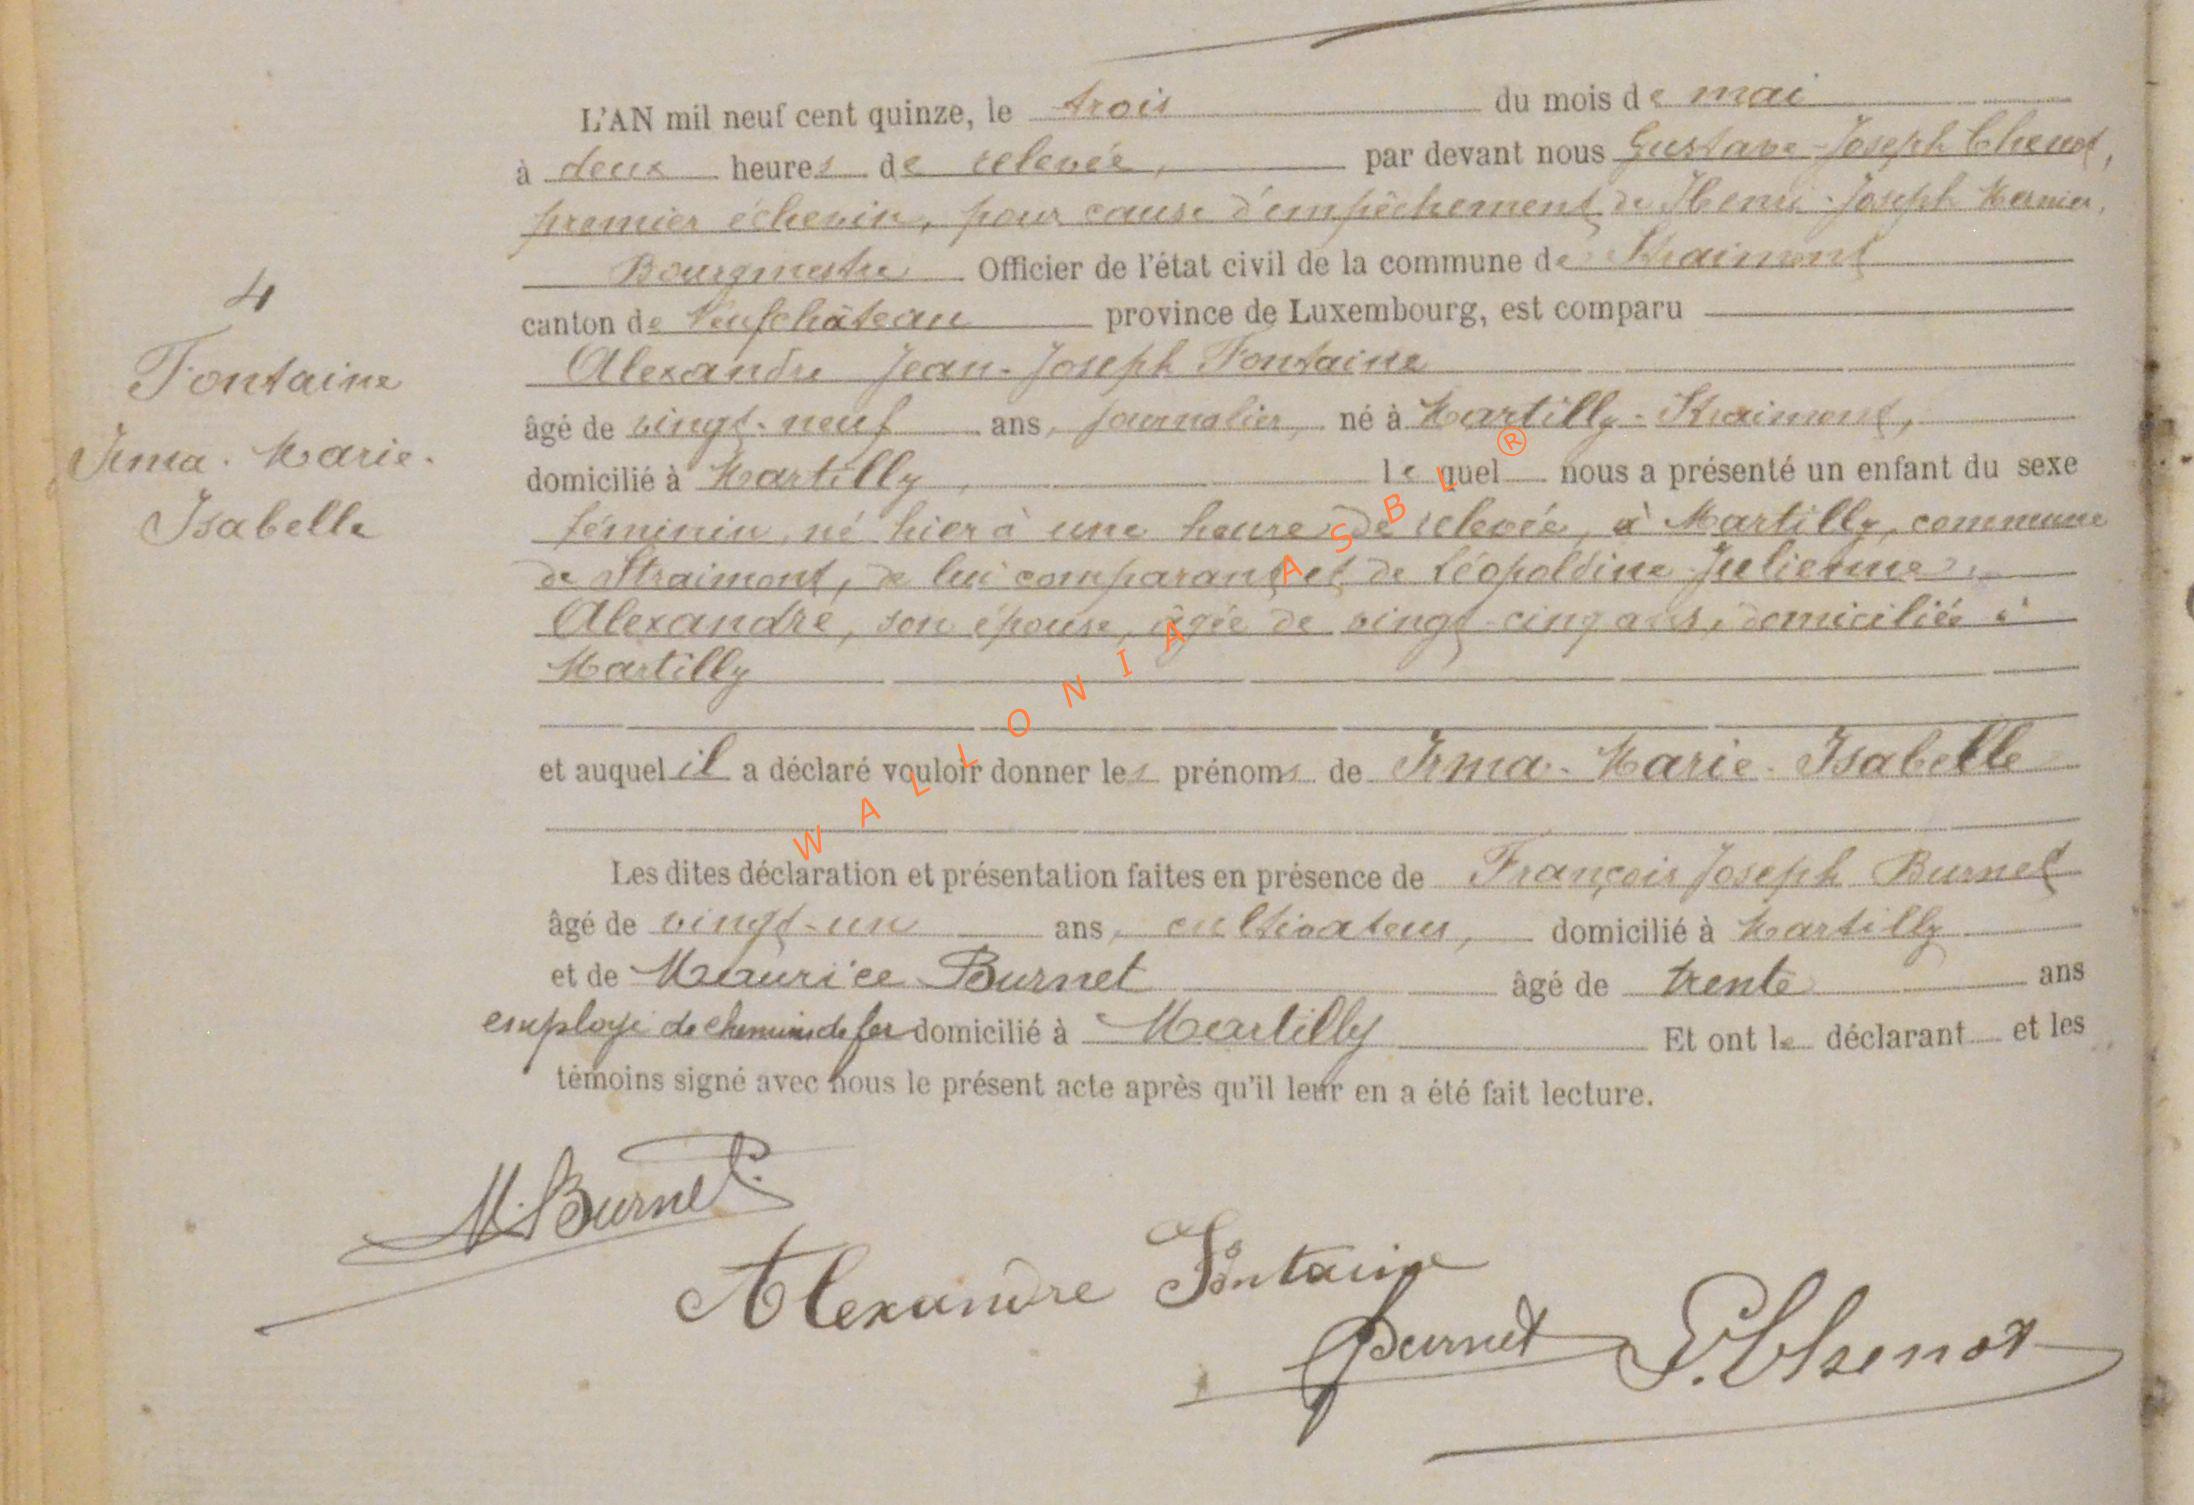 L'AN mil neuf cent quinze, le trois du mois de mai
à deux heures de relevée, par devant nous Gustave-Joseph Chenot,
premier échevin, pour cause d'empêchement de Henri-Joseph Mernier,
Bourgmestre Officier de l'état civil de la commune de Straimont
canton de Neufchâteau province de Luxembourg, est comparu
Alexandre Jean-Joseph Fontaine
âgé de vingt-neuf ans, journalier, né à Martilly-Straimont,
domicilié à Martilly, lequel nous a présenté un enfant du sexe
féminin, né hier à une heure de relevée, à Martilly, commune
de Straimont, de lui comparant et de Léopoldine Julienne
Alexandre, son épouse, âgée de vingt-cinq ans, domiciliée à
Martilly
et auquel il a déclaré vouloir donner les prénoms de Irma-Marie-Isabelle
Les dites déclaration et présentation faites en présence de François Joseph Burnet
âgé de vingt-un ans, cultivateur, domicilié à Martilly
et de Maurice Burnet âgé de trente ans
employé de chemin de fer domicilié à Martilly Et ont le déclarant et les
témoins signé avec nous le présent acte après qu'il leur en a été fait lecture.
4
Fontaine
Irma-Marie-
Isabelle
M. Burnet
Alexandre Fontaine
Burnet
G. Chenot
WALLONIA ASBL ®